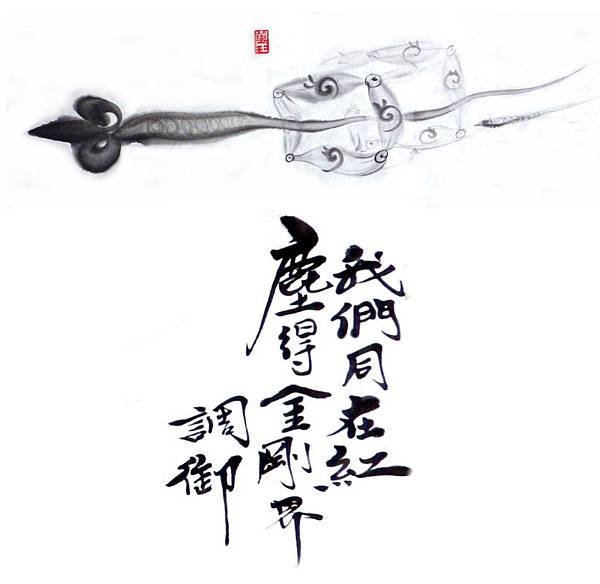 我們同在紅
塵得金剛界
調御